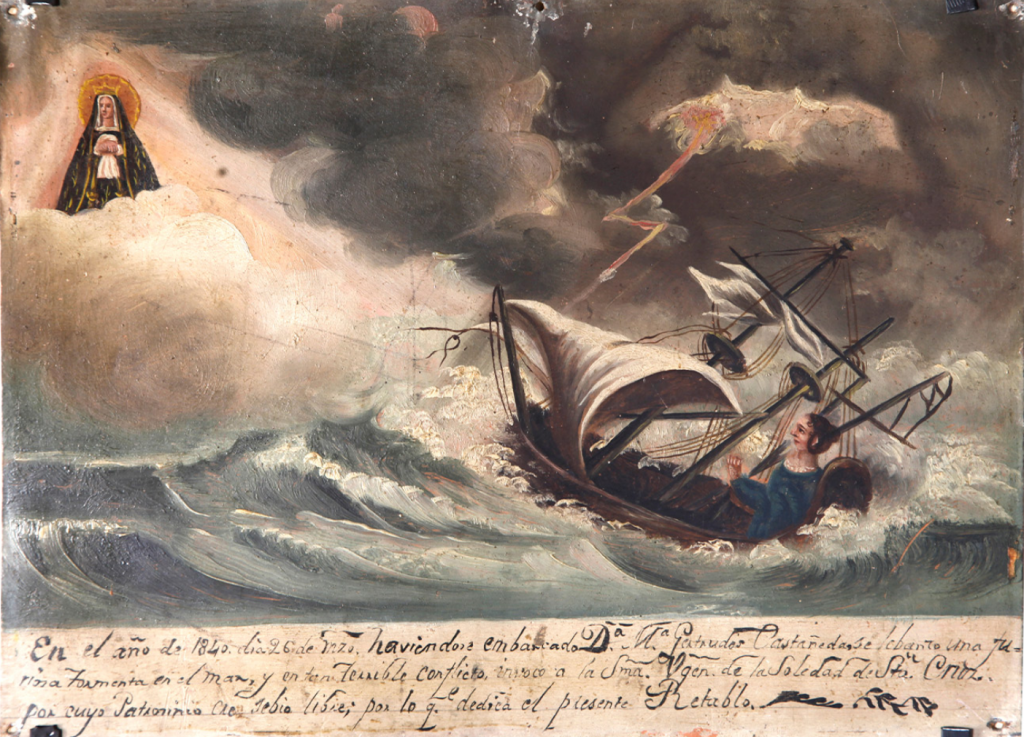 En el año de 1840. dia 26 de haviendose embarcado D.ª M.ª Getrudes Castañeda se lebanto una fu-
riosa tormenta en el mar, y en tan terrible conflicto, invoco a la Sma. Vgen. de la Soledad de Sta. Cruz.
por cuyo Patrocinio se vio libre; por lo q.e dedica el presente Retablo.